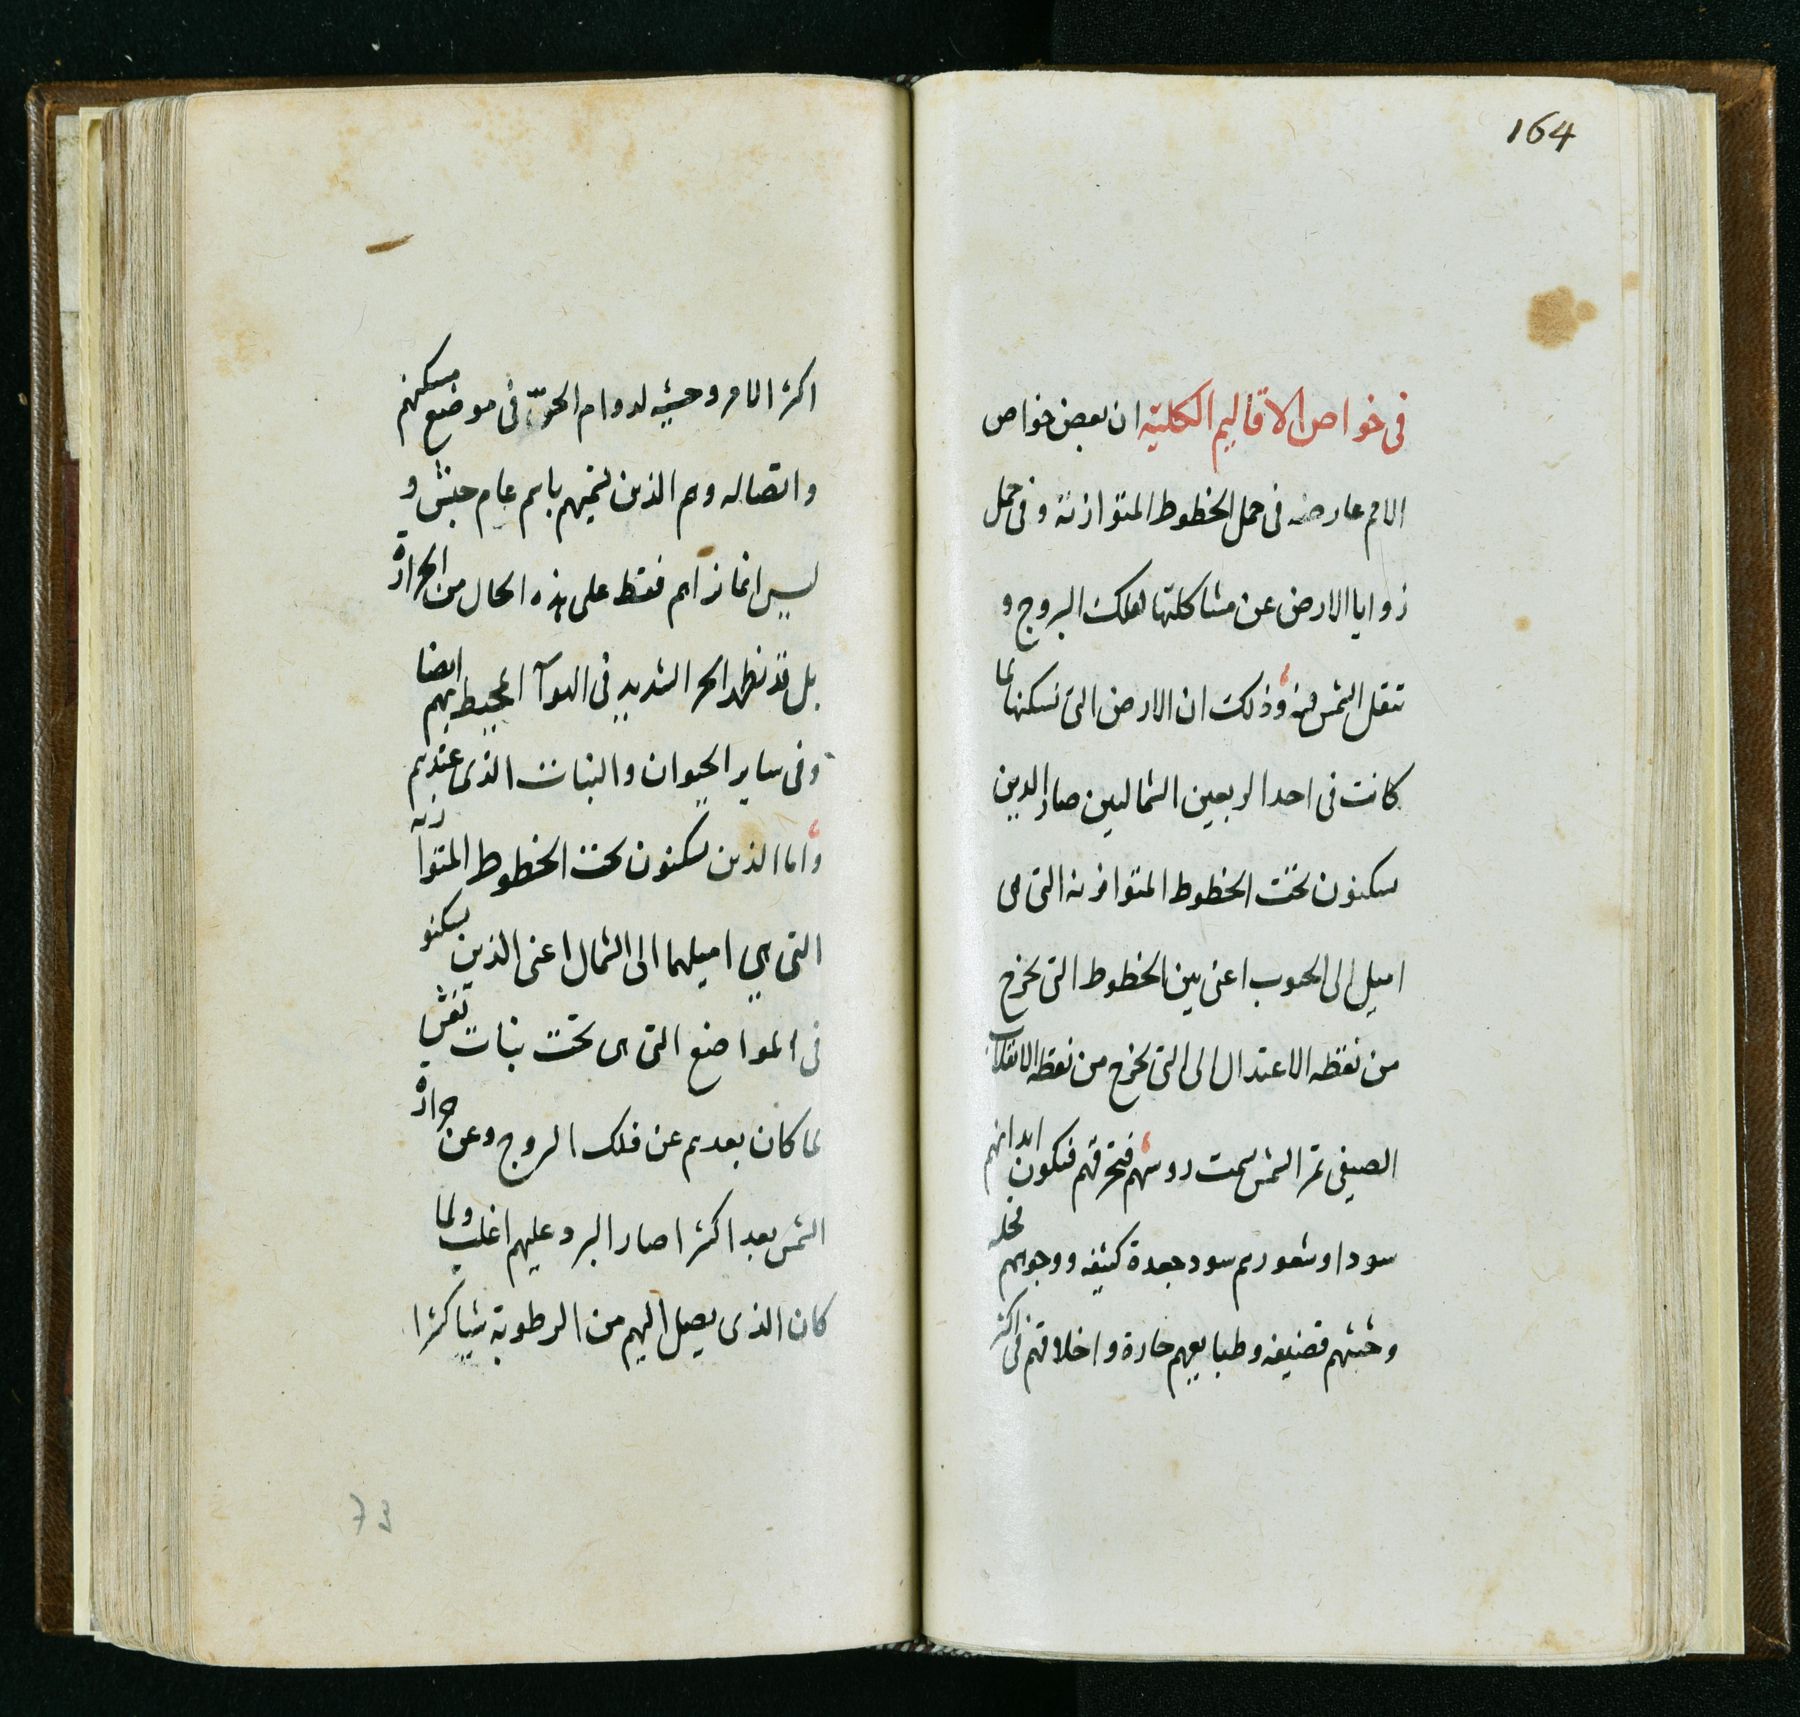 164
في خواص الاقاليم الكلية ان بعض خواص
الامم عارضه في جمل الخطوط المتوازنة وفي جمل
زوايا الارض عن مشاكلتها لفلك البروج و
تنقل الشمس فيه وذلك ان الارض التى نسكنها لما
كانت في احد الربعين الشماليين صار الدين
يسكنون تحت الخطوط المتوازنه التي هى
اميل الى الجنوب اعني بين الخطوط التى تخرج
من نقطه الاعتدال الى التى تخرج من نقطه الانقلاب
الصيفى تمر الشمس سمت روسهم فتحرقهم فتكون ابدانهم
سودا وشعورهم سود جعدة كثيفه ووجوههم قحله
وجثثهم قضيفه وطبايعهم حارة واخلاقهم في اكثر
اكثر الامر وحشيه لدوام الحر في موضع مسكنهم
واتصاله وهم الذين نسميهم باسم عام حبش و
ليس انما نراهم فقط على هذه الحال من الحرارة
بل قد نظهر الحر الشديد في الهوآ المحيط بهم ايضا
وفي ساير الحيوان والنبات الذى عندهم
واما الذين يسكنون تحت الخطوط المتوازنه
التى هي اميلهما الى الشمال اعنى الذين يسكنو
في المواضع التى هى تحت بنات نعش
لما كان بعدهم عن فلك البروج وعن حرارة
الشمس بعد اكثرا صار البرد عليهم اغلب ولما
كان الذى يصل اليهم من الرطوبة شيا كثرا
73